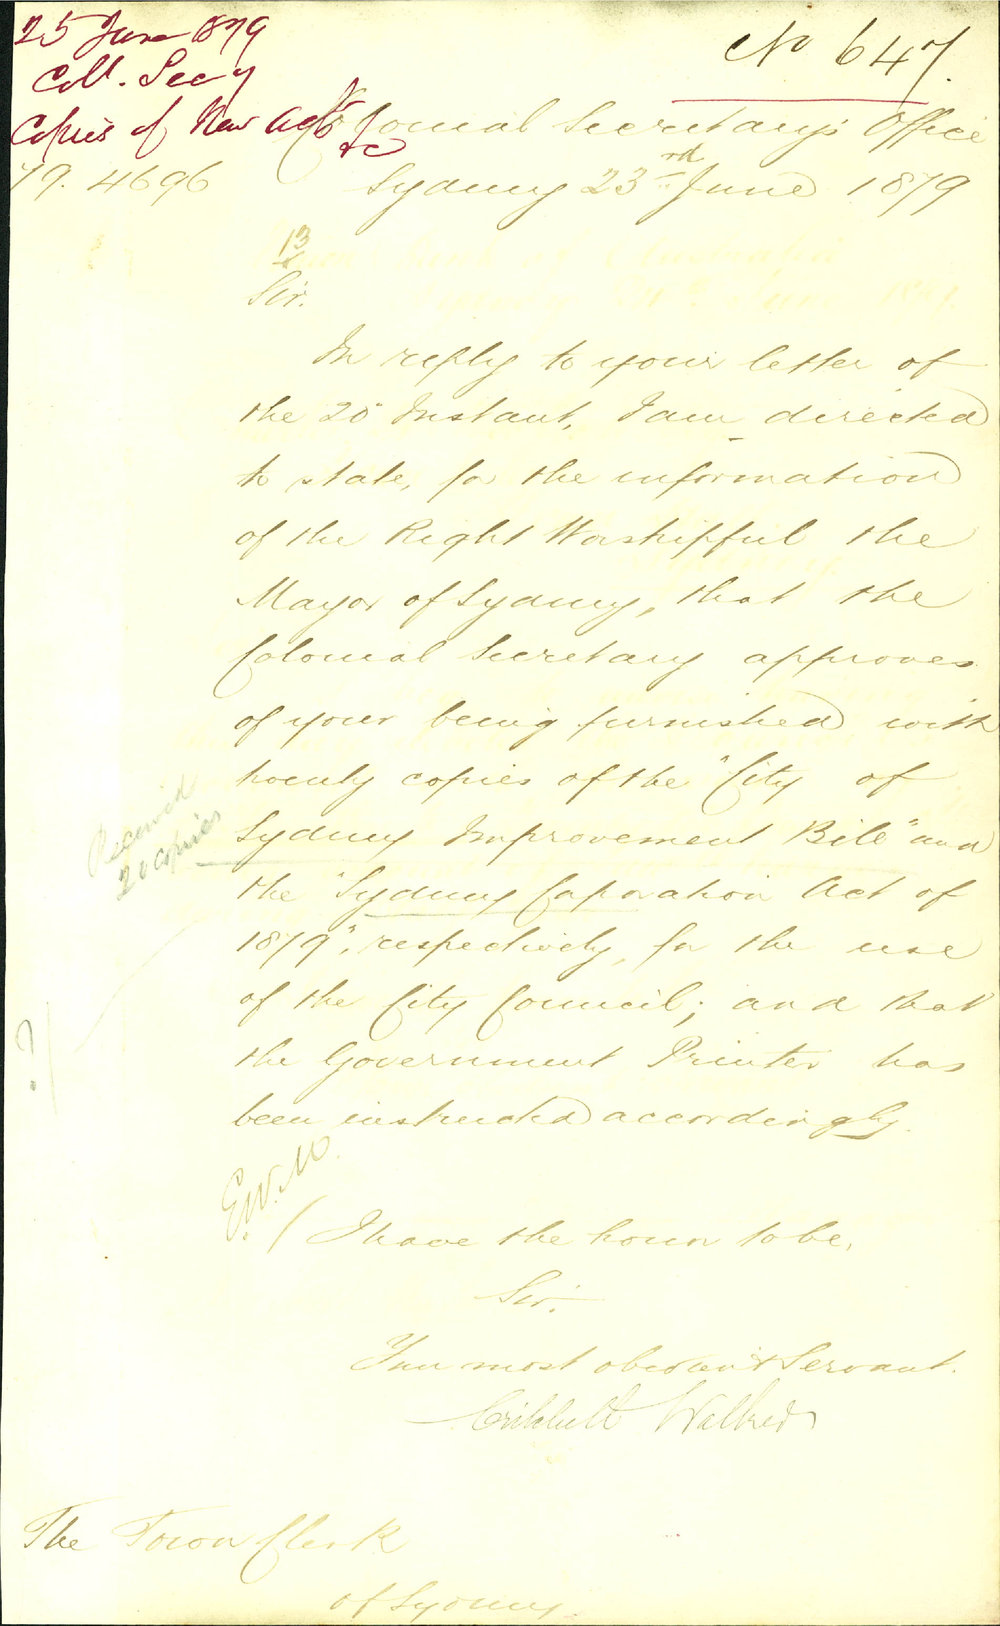 25 June 1879
Col. Secy
Copies of New Acts
&c
No 647.
Colonial Secretary's Office
79. 4696
Sydney 23rd June 1879
13
Sir.
In reply to your letter of
the 20 Instant, I am directed
to state, for the information
of the Right Worshipful the
Mayor of Sydney, that the
Colonial Secretary approves
of your being furnished with
twenty copies of the "City of
Sydney Improvement Bill" and
the "Sydney Corporation Act of
1879", respectively, for the use
of the City Council; and that
the Government Printer has
been instructed accordingly.
Received
20 copies
?
E.W.M.
I have the honor to be,
Sir.
Your most obedient Servant.
Critchett Walker
The Town Clerk
of Sydney.